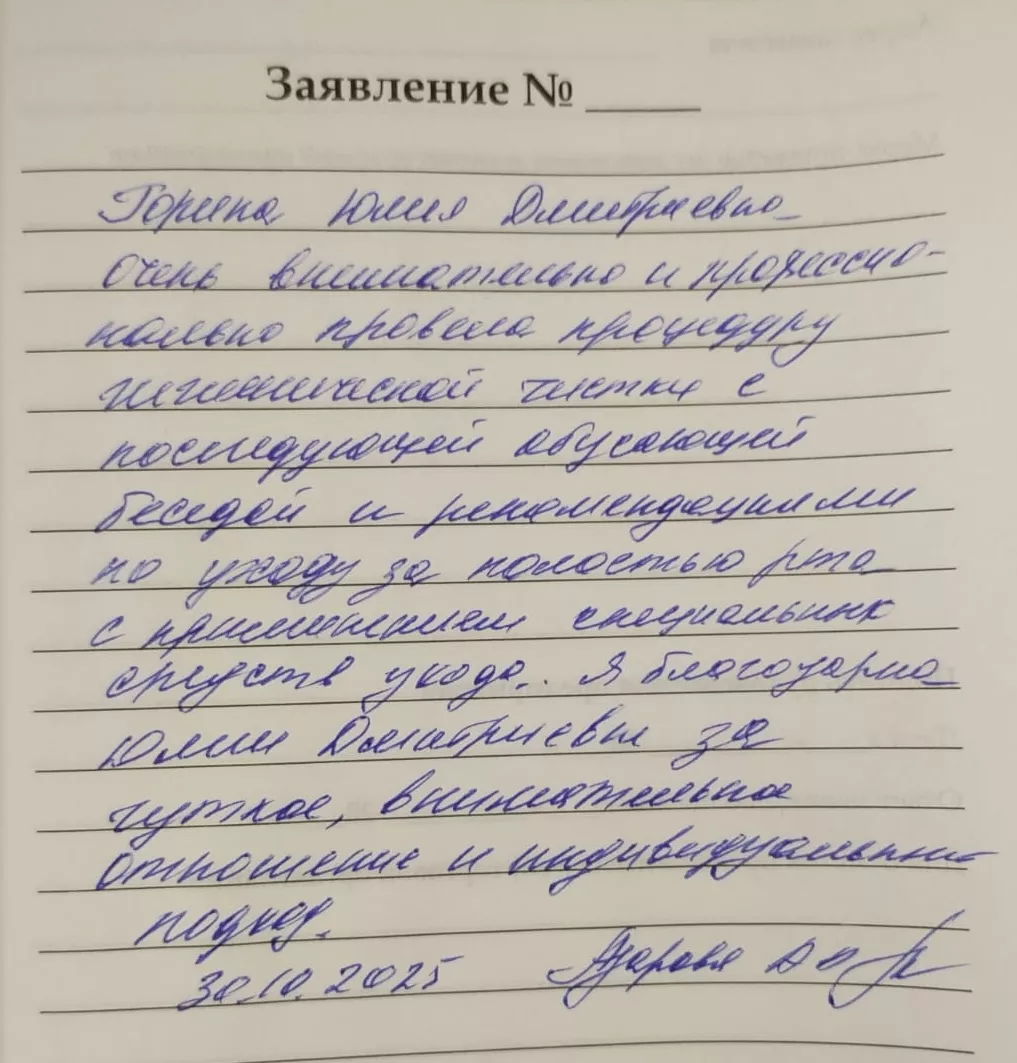 Заявление № ____
Горина Юлия Дмитриевна
очень внимательно и професcио-
нально провела процедуру
гигиенической чистки с
последующей обучающей
беседой и рекомендациями
по уходу за полостью рта
с применением специальных
средств ухода. Я благодарна
Юлии Дмитриевны за
чуткое, внимательное
отношение и индивидуальный
подход.
30.10.2025